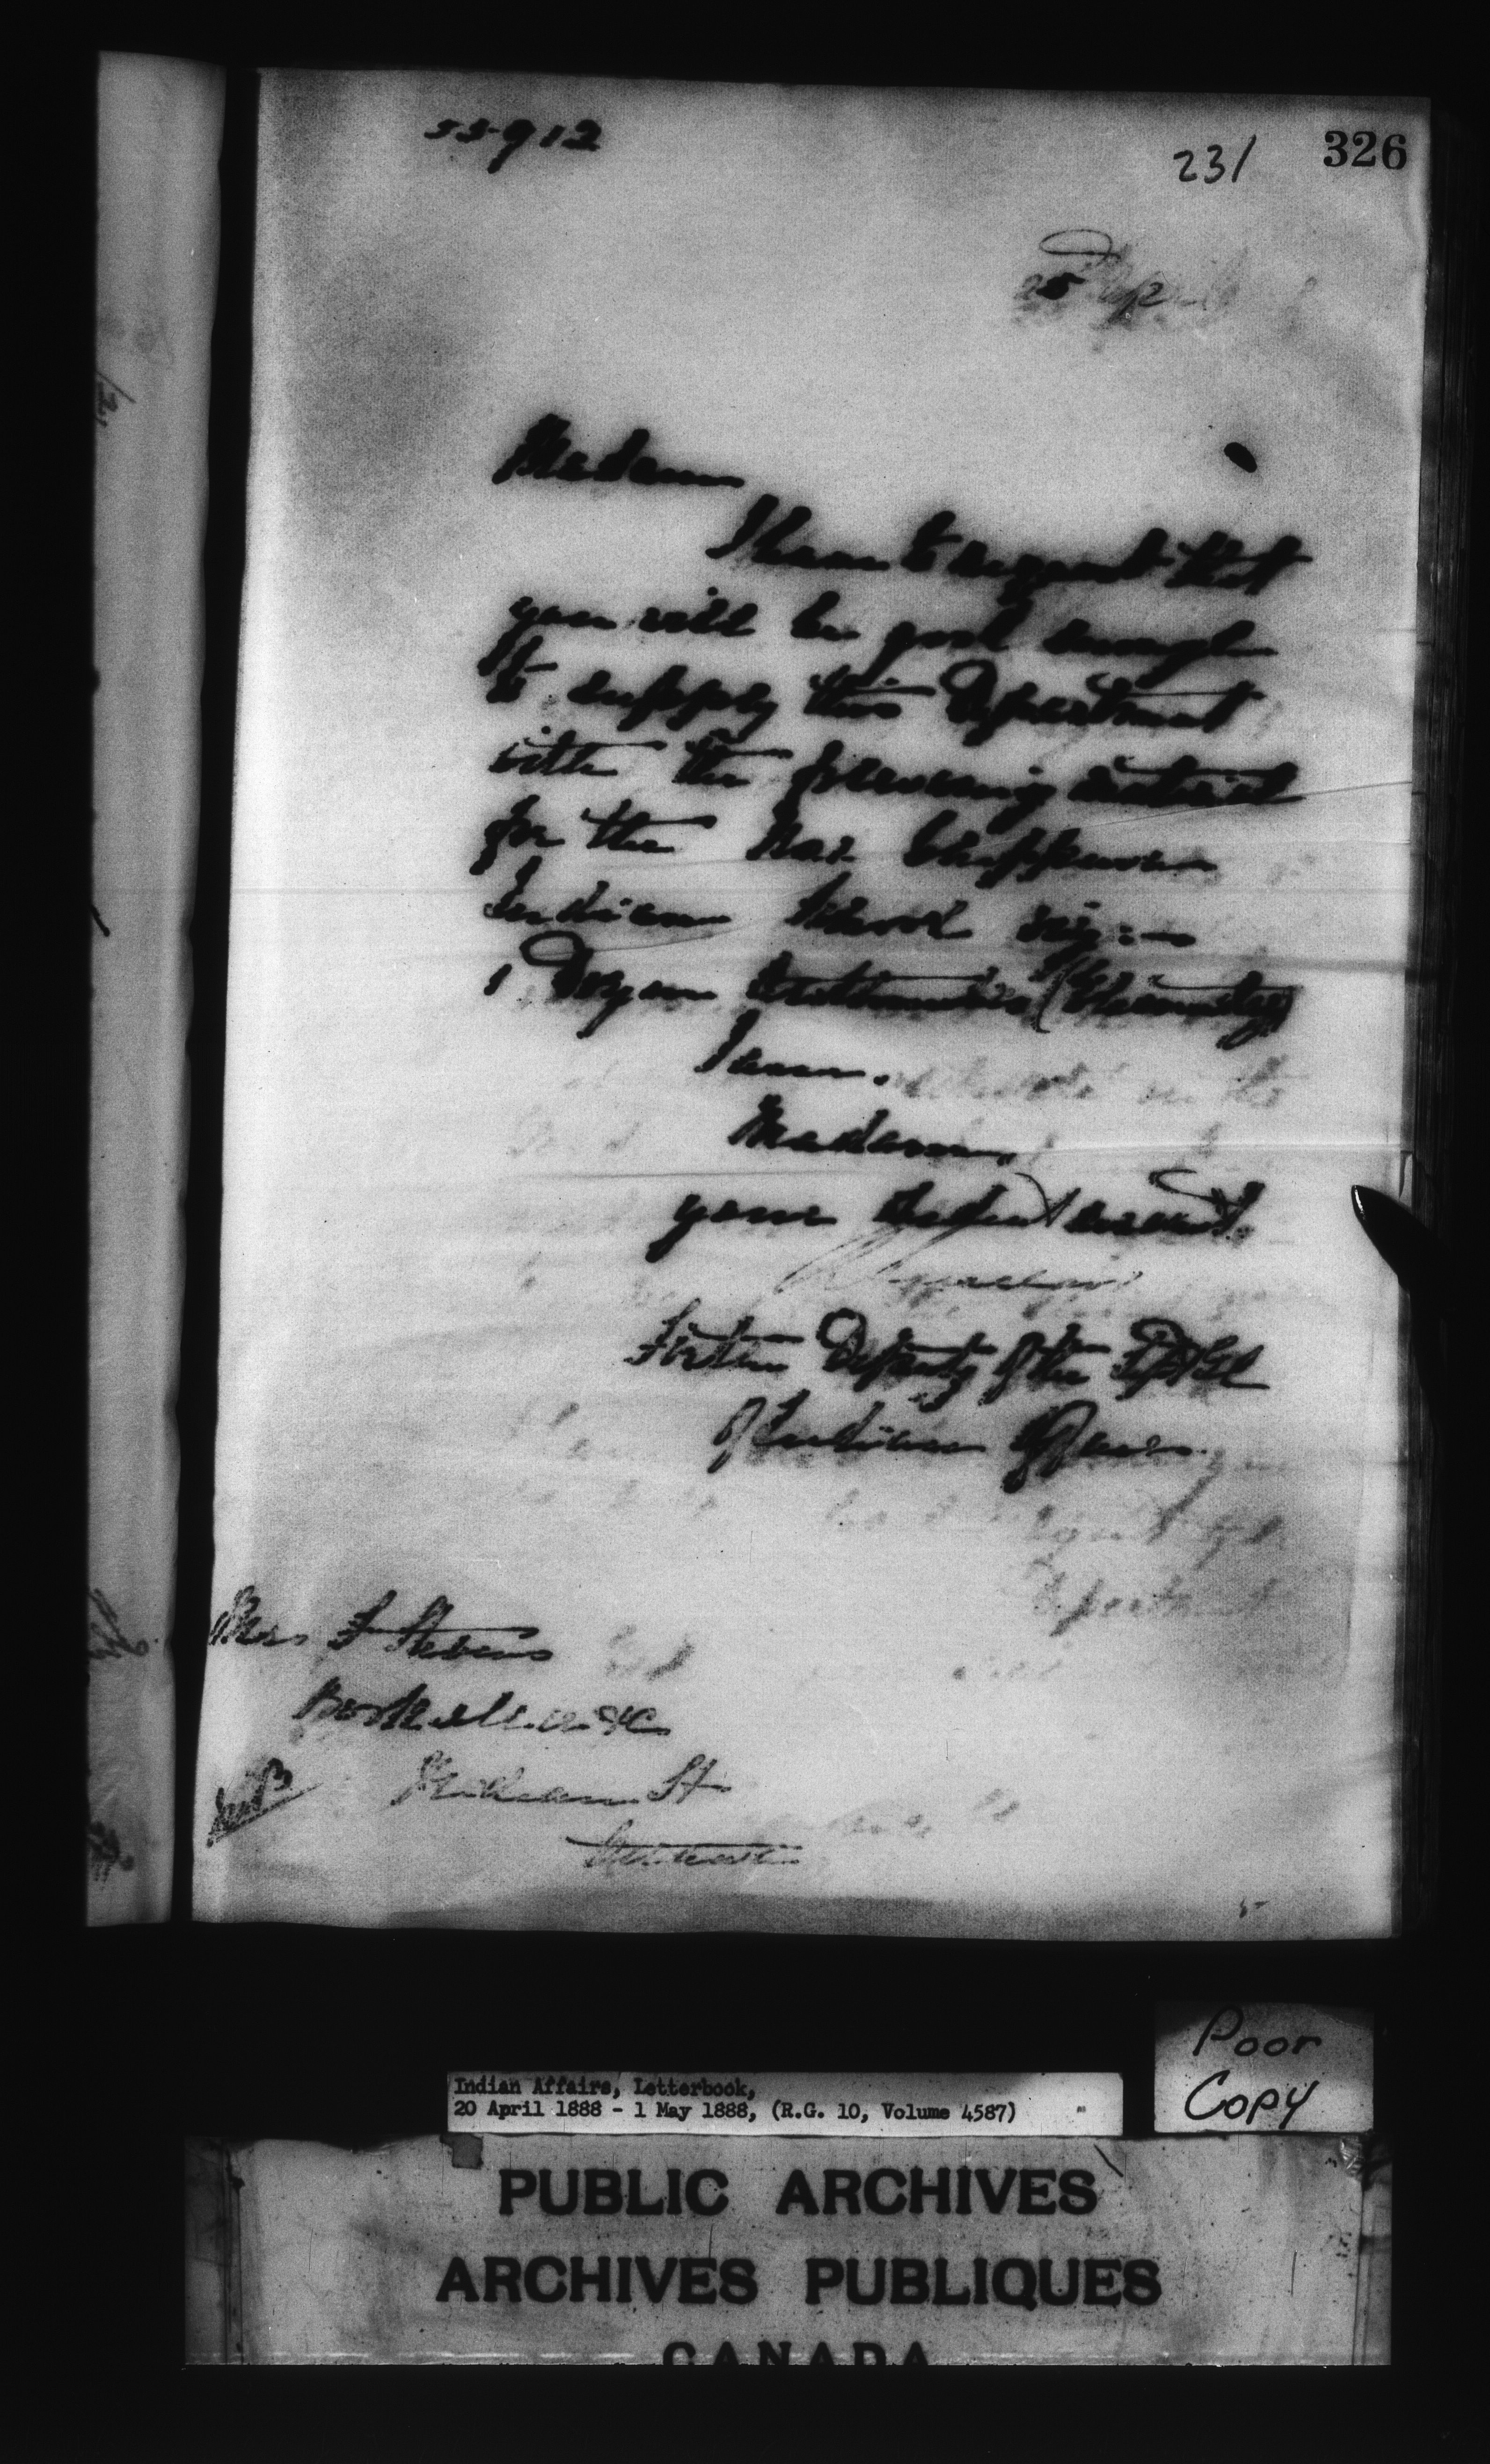 55912
231
326
25 April
Madam
I have to request that
you will be good enough
to supply this Department
with the following material
for the New
Indian School viz:—
1 Dozen Arithmetics (Elementary)
I am.
Madam,
your obedient servant.
for the Deputy of the Supt Genl
of Indian Affairs.
Mrs F Stevens
Bookseller &c
St
Poor
Copy
Indian Affairs, Letterbook,
20 April 1888 - 1 May 1888, (R.G. 10, Volume 4587)
PUBLIC ARCHIVES
ARCHIVES PUBLIQUES
CANADA